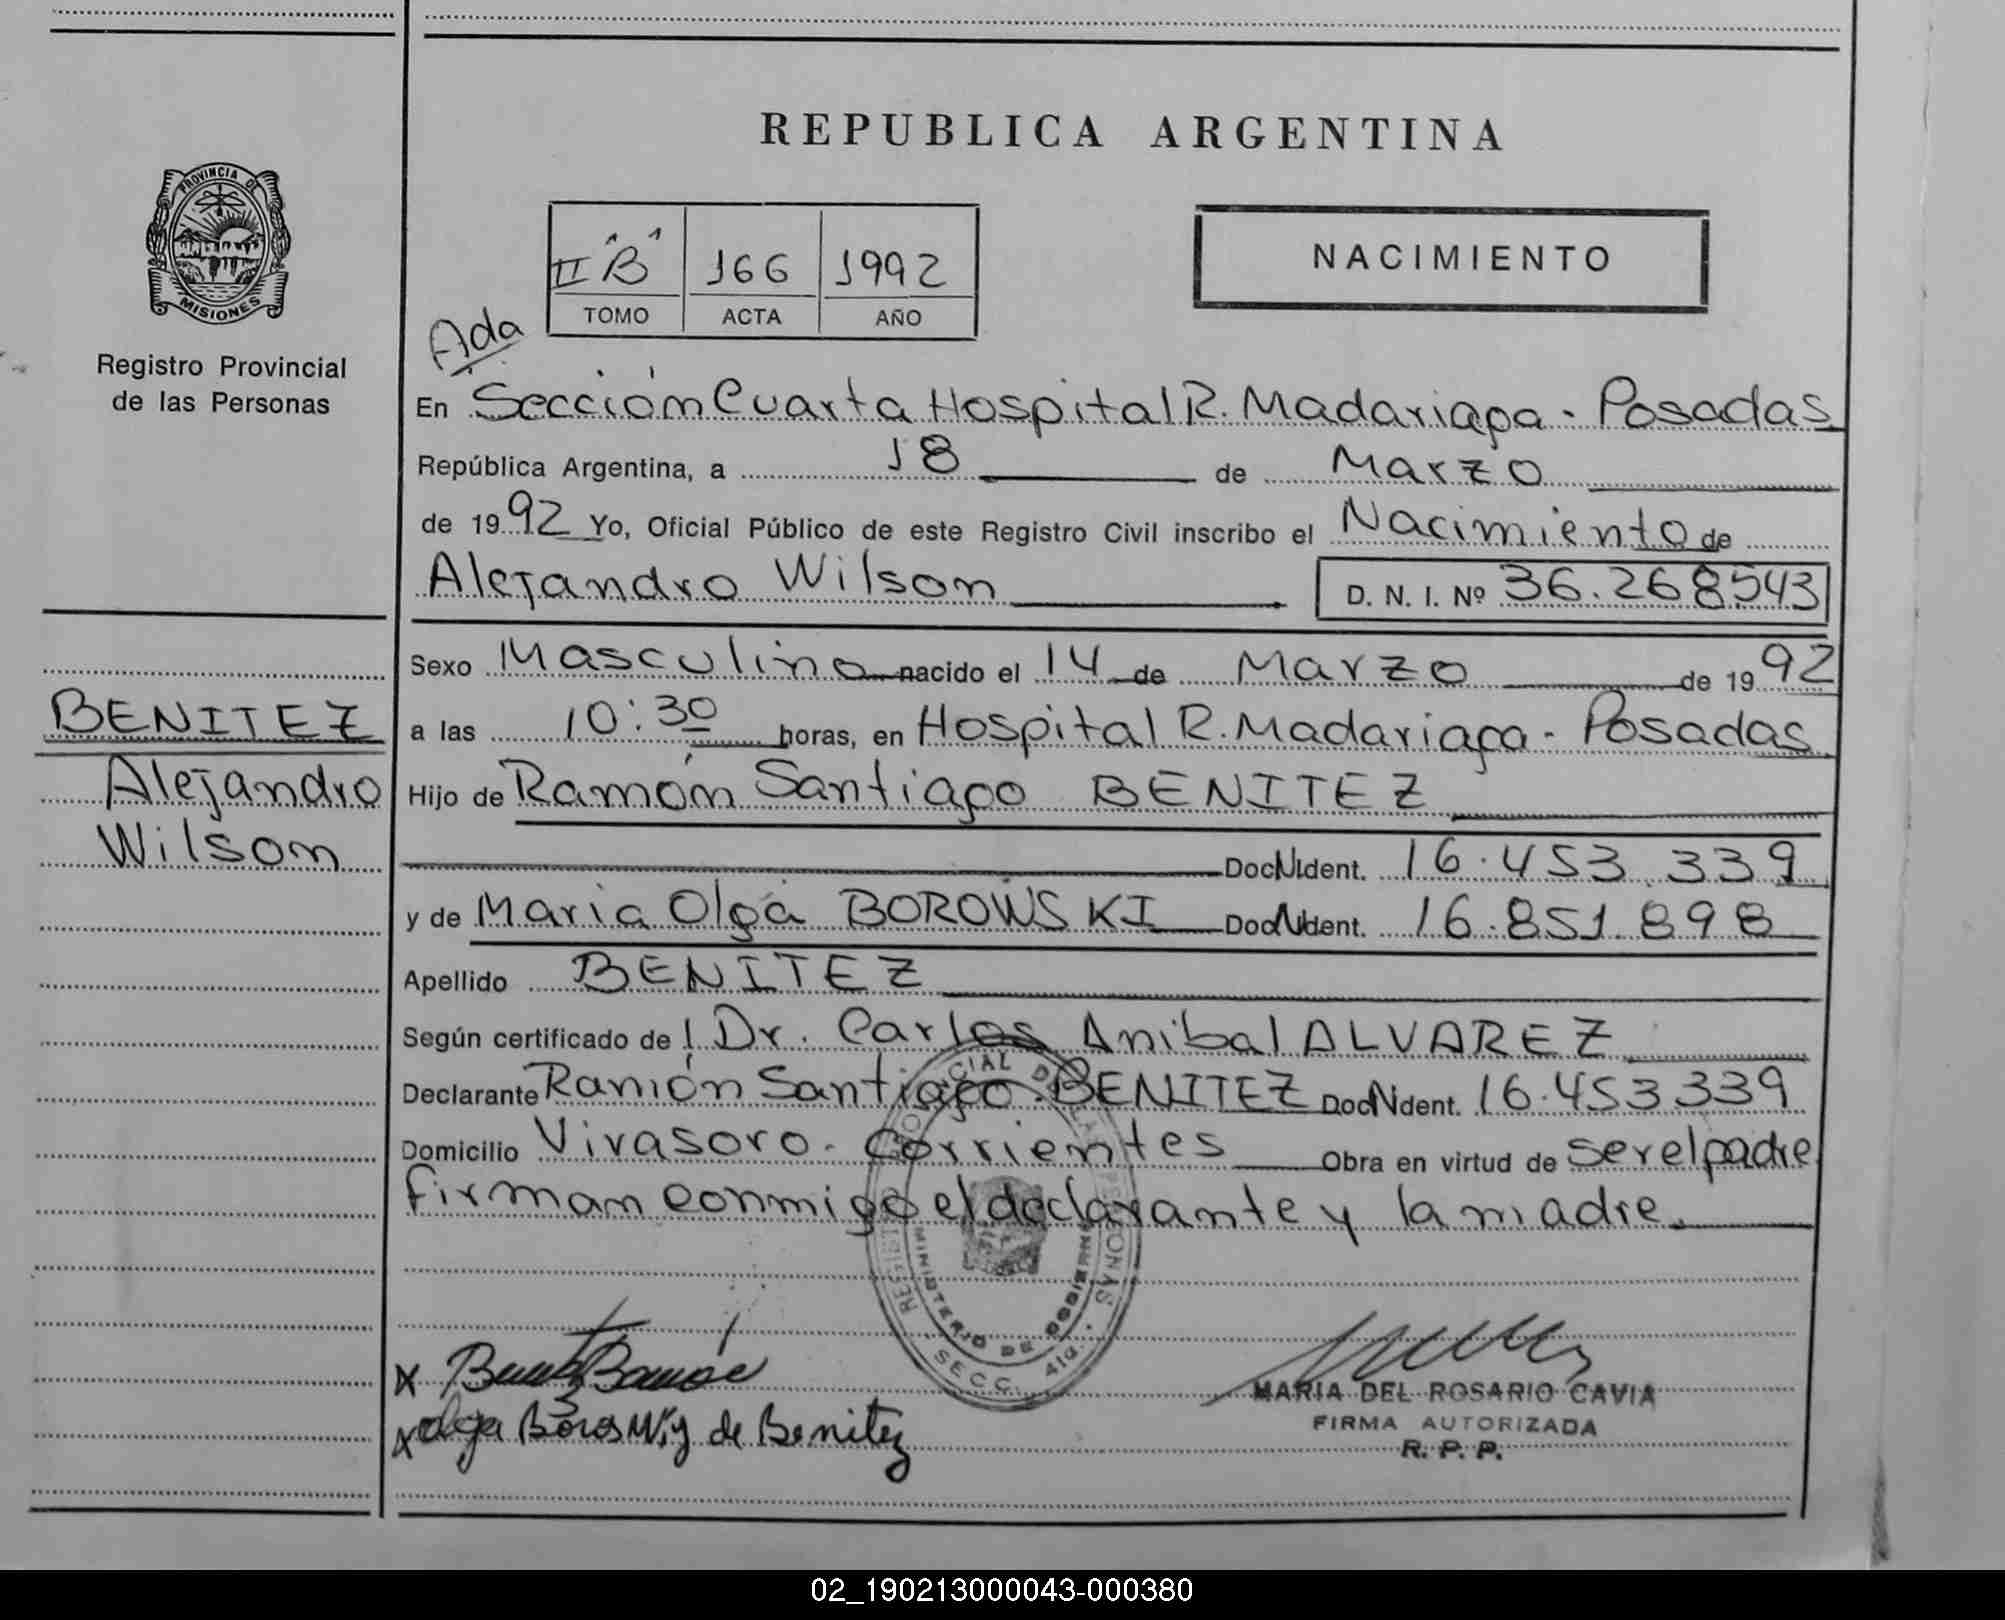 REPUBLICA ARGENTINA
PROVINCIA DE
MISIONES
Registro Provincial
de las Personas
II "B" 166 1992
TOMO ACTA AÑO
NACIMIENTO
Ada
En Sección Cuarta Hospital R. Madariaga - Posadas
República Argentina, a 18 de Marzo
de 1992 Yo, Oficial Público de este Registro Civil inscribo el Nacimiento de
Alejandro Wilson D. N. I. Nº 36.268543
Sexo Masculino nacido el 14 de Marzo de 1992
a las 10:30 horas, en Hospital R. Madariaga - Posadas
Hijo de Ramón Santiago BENITEZ
Doc N Ident. 16.453.339
y de Maria Olga BOROWSKI Doc N Ident. 16.851.898
Apellido BENITEZ
Según certificado del Dr. Carlos Anibal ALVAREZ
Declarante Ramón Santiago BENITEZ Doc N Ident. 16.453.339
Domicilio Virasoro - Corrientes Obra en virtud de ser el padre
firman conmigo el declarante y la madre.
BENITEZ
Alejandro
Wilson
REGISTRO PROVINCIAL DE LAS PERSONAS
MINISTERIO DE GOBIERNO
SECC. 4ta.
x Benitez Ramon
x Olga Borosky de Benitez
MARIA DEL ROSARIO CAVIA
FIRMA AUTORIZADA
R. P. P.
02_190213000043-000380